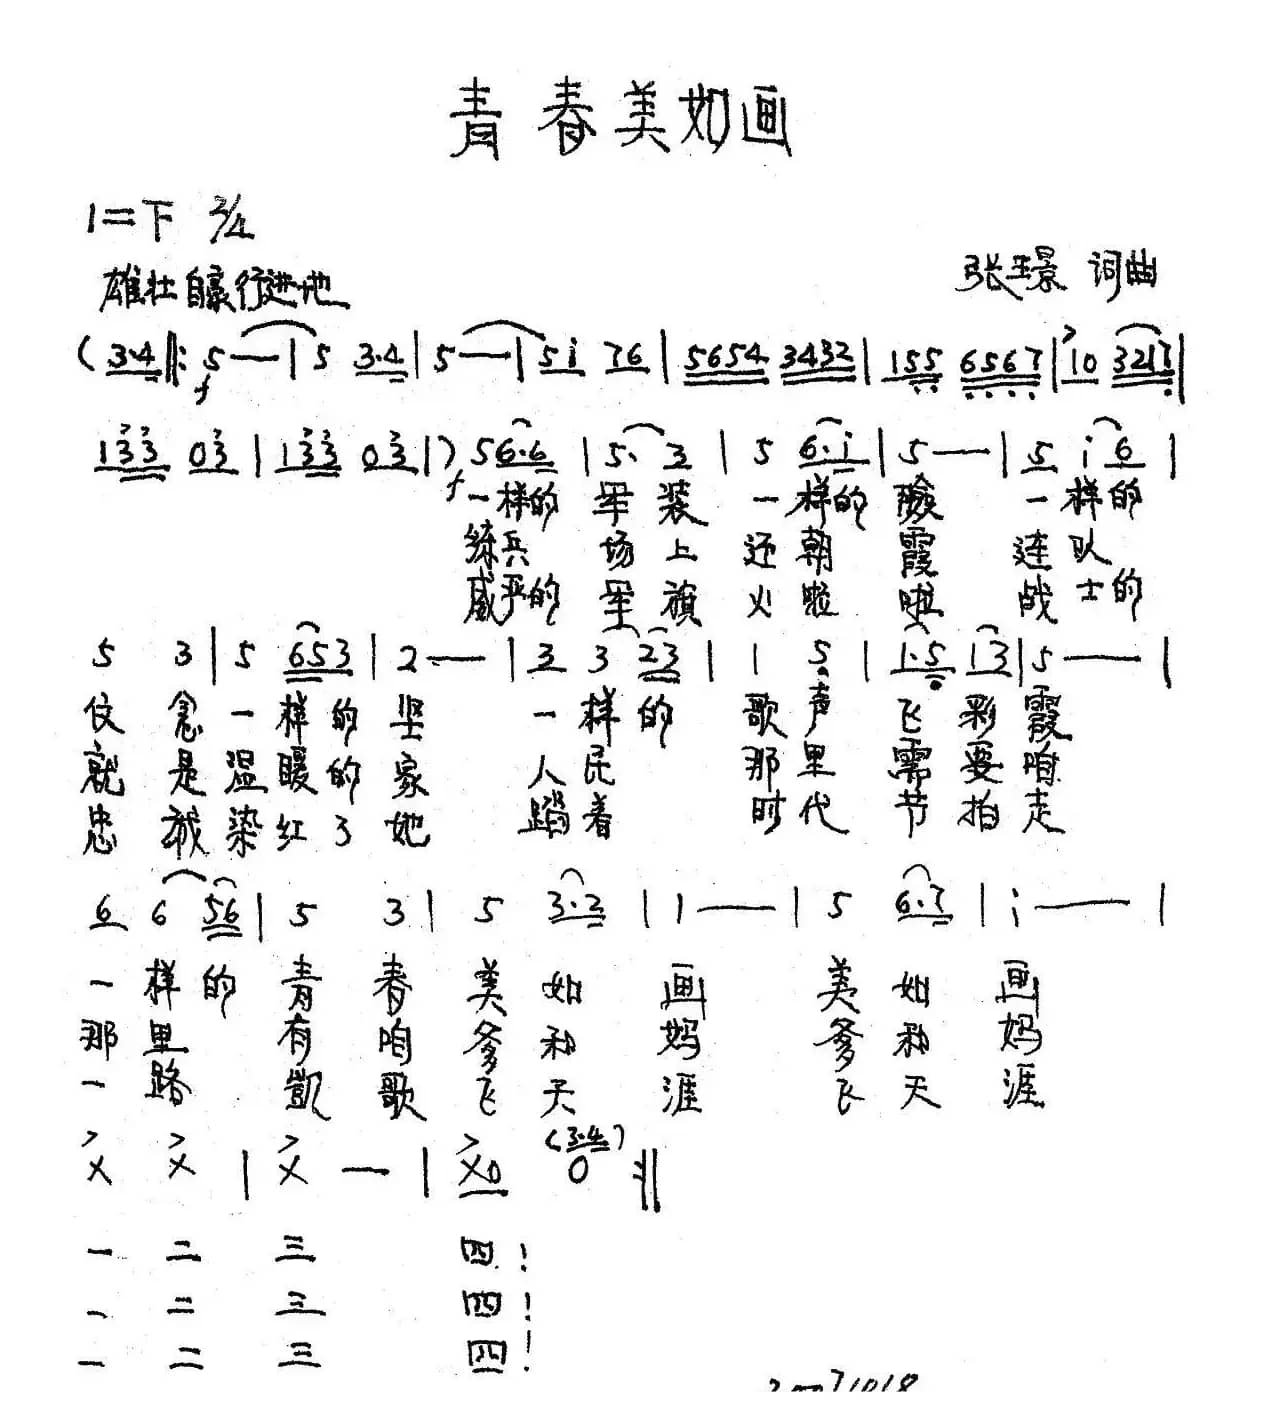 青春美如画
1=下 2/4
雄壮自豪行进地
张璟 词曲
(3·4‖: 5 — | 5 3·4 | 5 — | 5i 76 | 5654 3432 | 155 6567 | 10 3217 |
133 03 | 133 03 |) 56·6 | 5· 3 | 5 6·i | 5 — | 5 i 6 |
f 一样的 军装 一样的 脸 一样的
练兵 场上 还朝霞 连队
威严的 军旗 火啦啦 战士的
5 3 | 5 653 | 2 — | 3 3 23 | 1 5 | 1·5 13 | 5 — |
仗念一样的坚 一样的 歌声飞彩霞
就是温暖的家 人民 那里需要咱
忠诚染红了她 踏着 时代节拍走
6 6 56 | 5 3 | 5 3·2 | 1 — | 5 6·7 | i — |
一样的青春美如画 美如画
那里有咱爹和妈 爹和妈
一路凯歌飞天涯 飞天涯
X X | X — | X0 (3·4) 0 :‖
一 二 三 四!
一 二 三 四!
一 二 三 四!